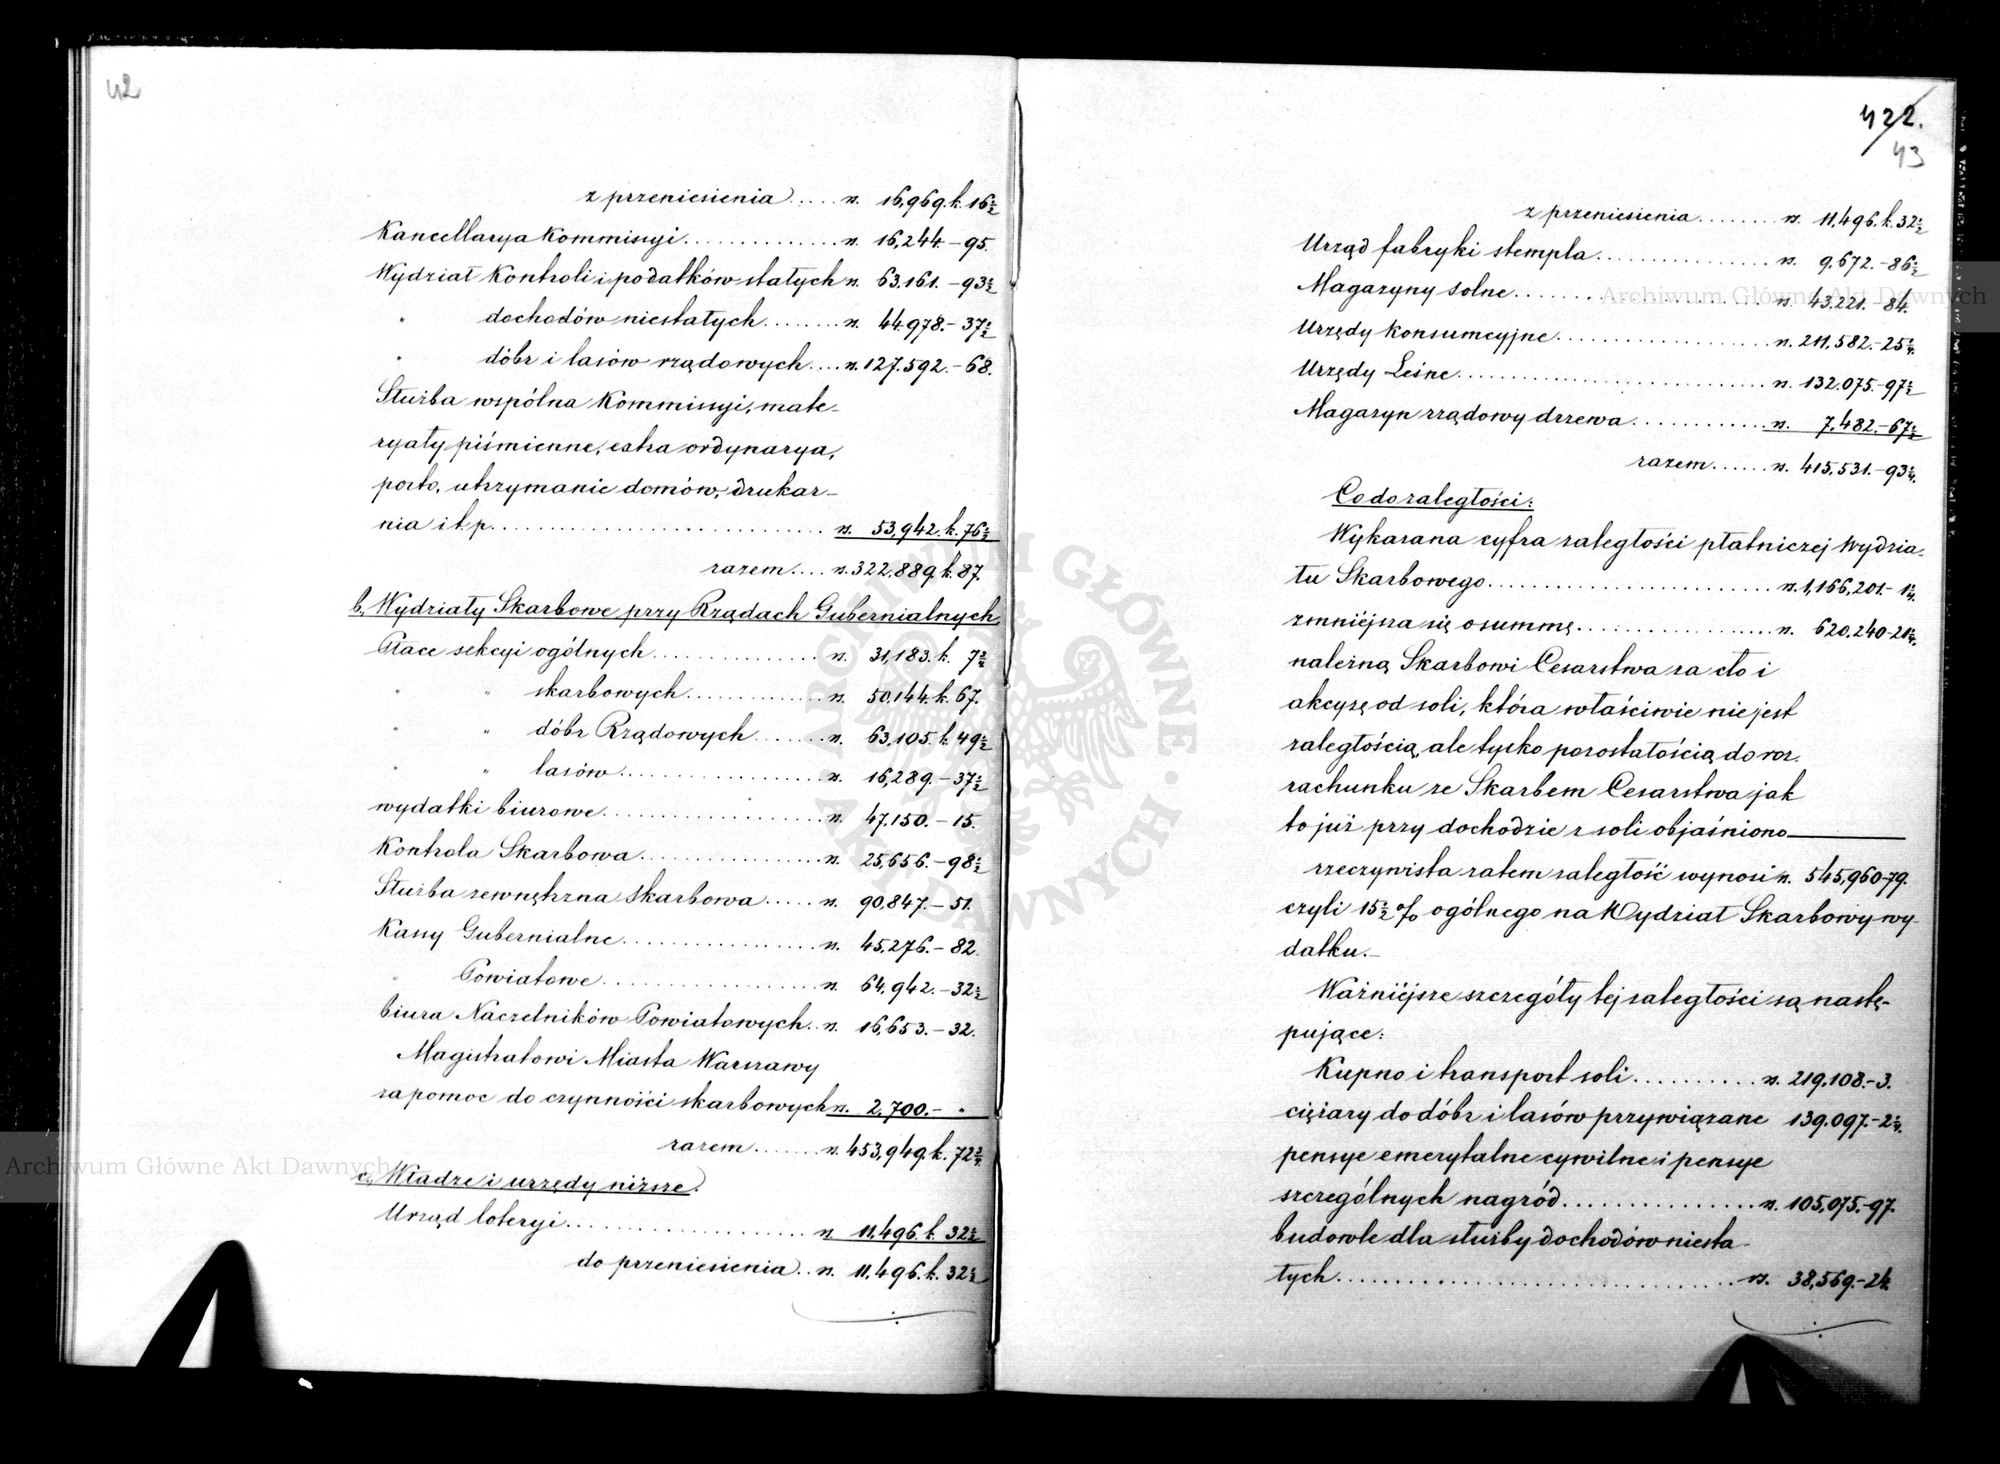 42
z przeniesienia..... rs. 16,969. k. 16½
Kancellarya Kommissyi............... rs. 16,244.–95.
Wydział Kontroli i podatków stałych rs. 63.161.–93½
" dochodów niestałych........ rs. 44.978.–37½
" dóbr i lasów rządowych.... rs. 127.592.–68.
Służba wspólna Kommissyi, mate-
ryały piśmienne, extra ordynarya,
porto, utrzymanie domów, drukar-
nia i t. p............................... rs. 53,942. k. 76½
razem.... rs. 322.889. k. 87.
b, Wydziały Skarbowe przy Rządach Gubernialnych
Płace sekcyi ogólnych................ rs. 31,183. k. 7½
" " skarbowych............ rs. 50.144. k. 67.
" " dóbr Rządowych....... rs. 63,105. k. 49½
" " lasów.................. rs. 16,289.–37½
wydatki biurowe..................... rs. 47.150.–15.
Kontrola Skarbowa................. rs. 25,656.–98½
Służba zewnętrzna skarbowa..... rs. 90,847.–51.
Kassy Gubernialne.................. rs. 45,276.–82.
" Powiatowe..................... rs. 64,942.–32½
biura Naczelników Powiatowych.. rs. 16,653.–32.
Magistratowi Miasta Warszawy
za pomoc do czynności skarbowych rs. 2,700.– "
razem....... rs. 453,949. k. 72¾
c, Władze i urzędy niższe.
Urząd loteryi....................... rs. 11,496. k. 32½
do przeniesienia.. rs. 11,496. k. 32½
422.
43
z przeniesienia........ rs. 11,496. k. 32½
Urząd fabryki stempla................ rs. 9,672.–86½
Magazyny solne....................... rs. 43.221.–84.
Urzędy Konsumcyjne.................. rs. 211,582.–25¼
Urzędy Leśne........................... rs. 132.075.–97½
Magazyn rządowy drzewa............ rs. 7,482.–67½
razem...... rs. 415,531.–93¼
Co do zaległości:
Wykazana cyfra zaległości płatniczej Wydzia-
łu Skarbowego......................... rs. 1,166,201.–1¼
zmniejsza się o summę................. rs. 620,240–21¼
należną Skarbowi Cesarstwa za cło i
akcyzę od soli, która właściwie nie jest
zaległością, ale tylko pozostałością do roz-
rachunku ze Skarbem Cesarstwa jak
to już przy dochodzie z soli objaśniono
rzeczywista zatem zaległość wynosi rs. 545,960–79.
czyli 15½ % ogólnego na Wydział Skarbowy wy-
datku.–
Ważniejsze szczegóły tej zaległości są nastę-
pujące:
Kupno i transport soli........... rs. 219.108.–3.
ciężary do dóbr i lasów przywiązane 139.097.–2¼
pensye emerytalne cywilne i pensye
szczególnych nagród................ rs. 105,075.–97.
budowle dla służby dochodów niesta-
łych.................................... rs. 38,569.–24.
Archiwum Główne Akt Dawnych
Archiwum Główne Akt Dawnych
ARCHIWUM GŁÓWNE AKT DAWNYCH